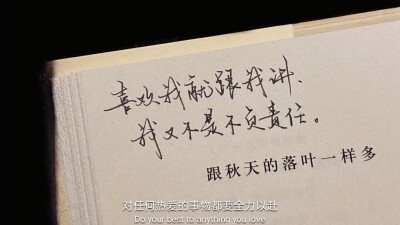 喜欢我就跟我讲、
我又不是不负责任。
跟秋天的落叶一样多
对任何热爱的事物都要全力以赴
Do your best to anything you love